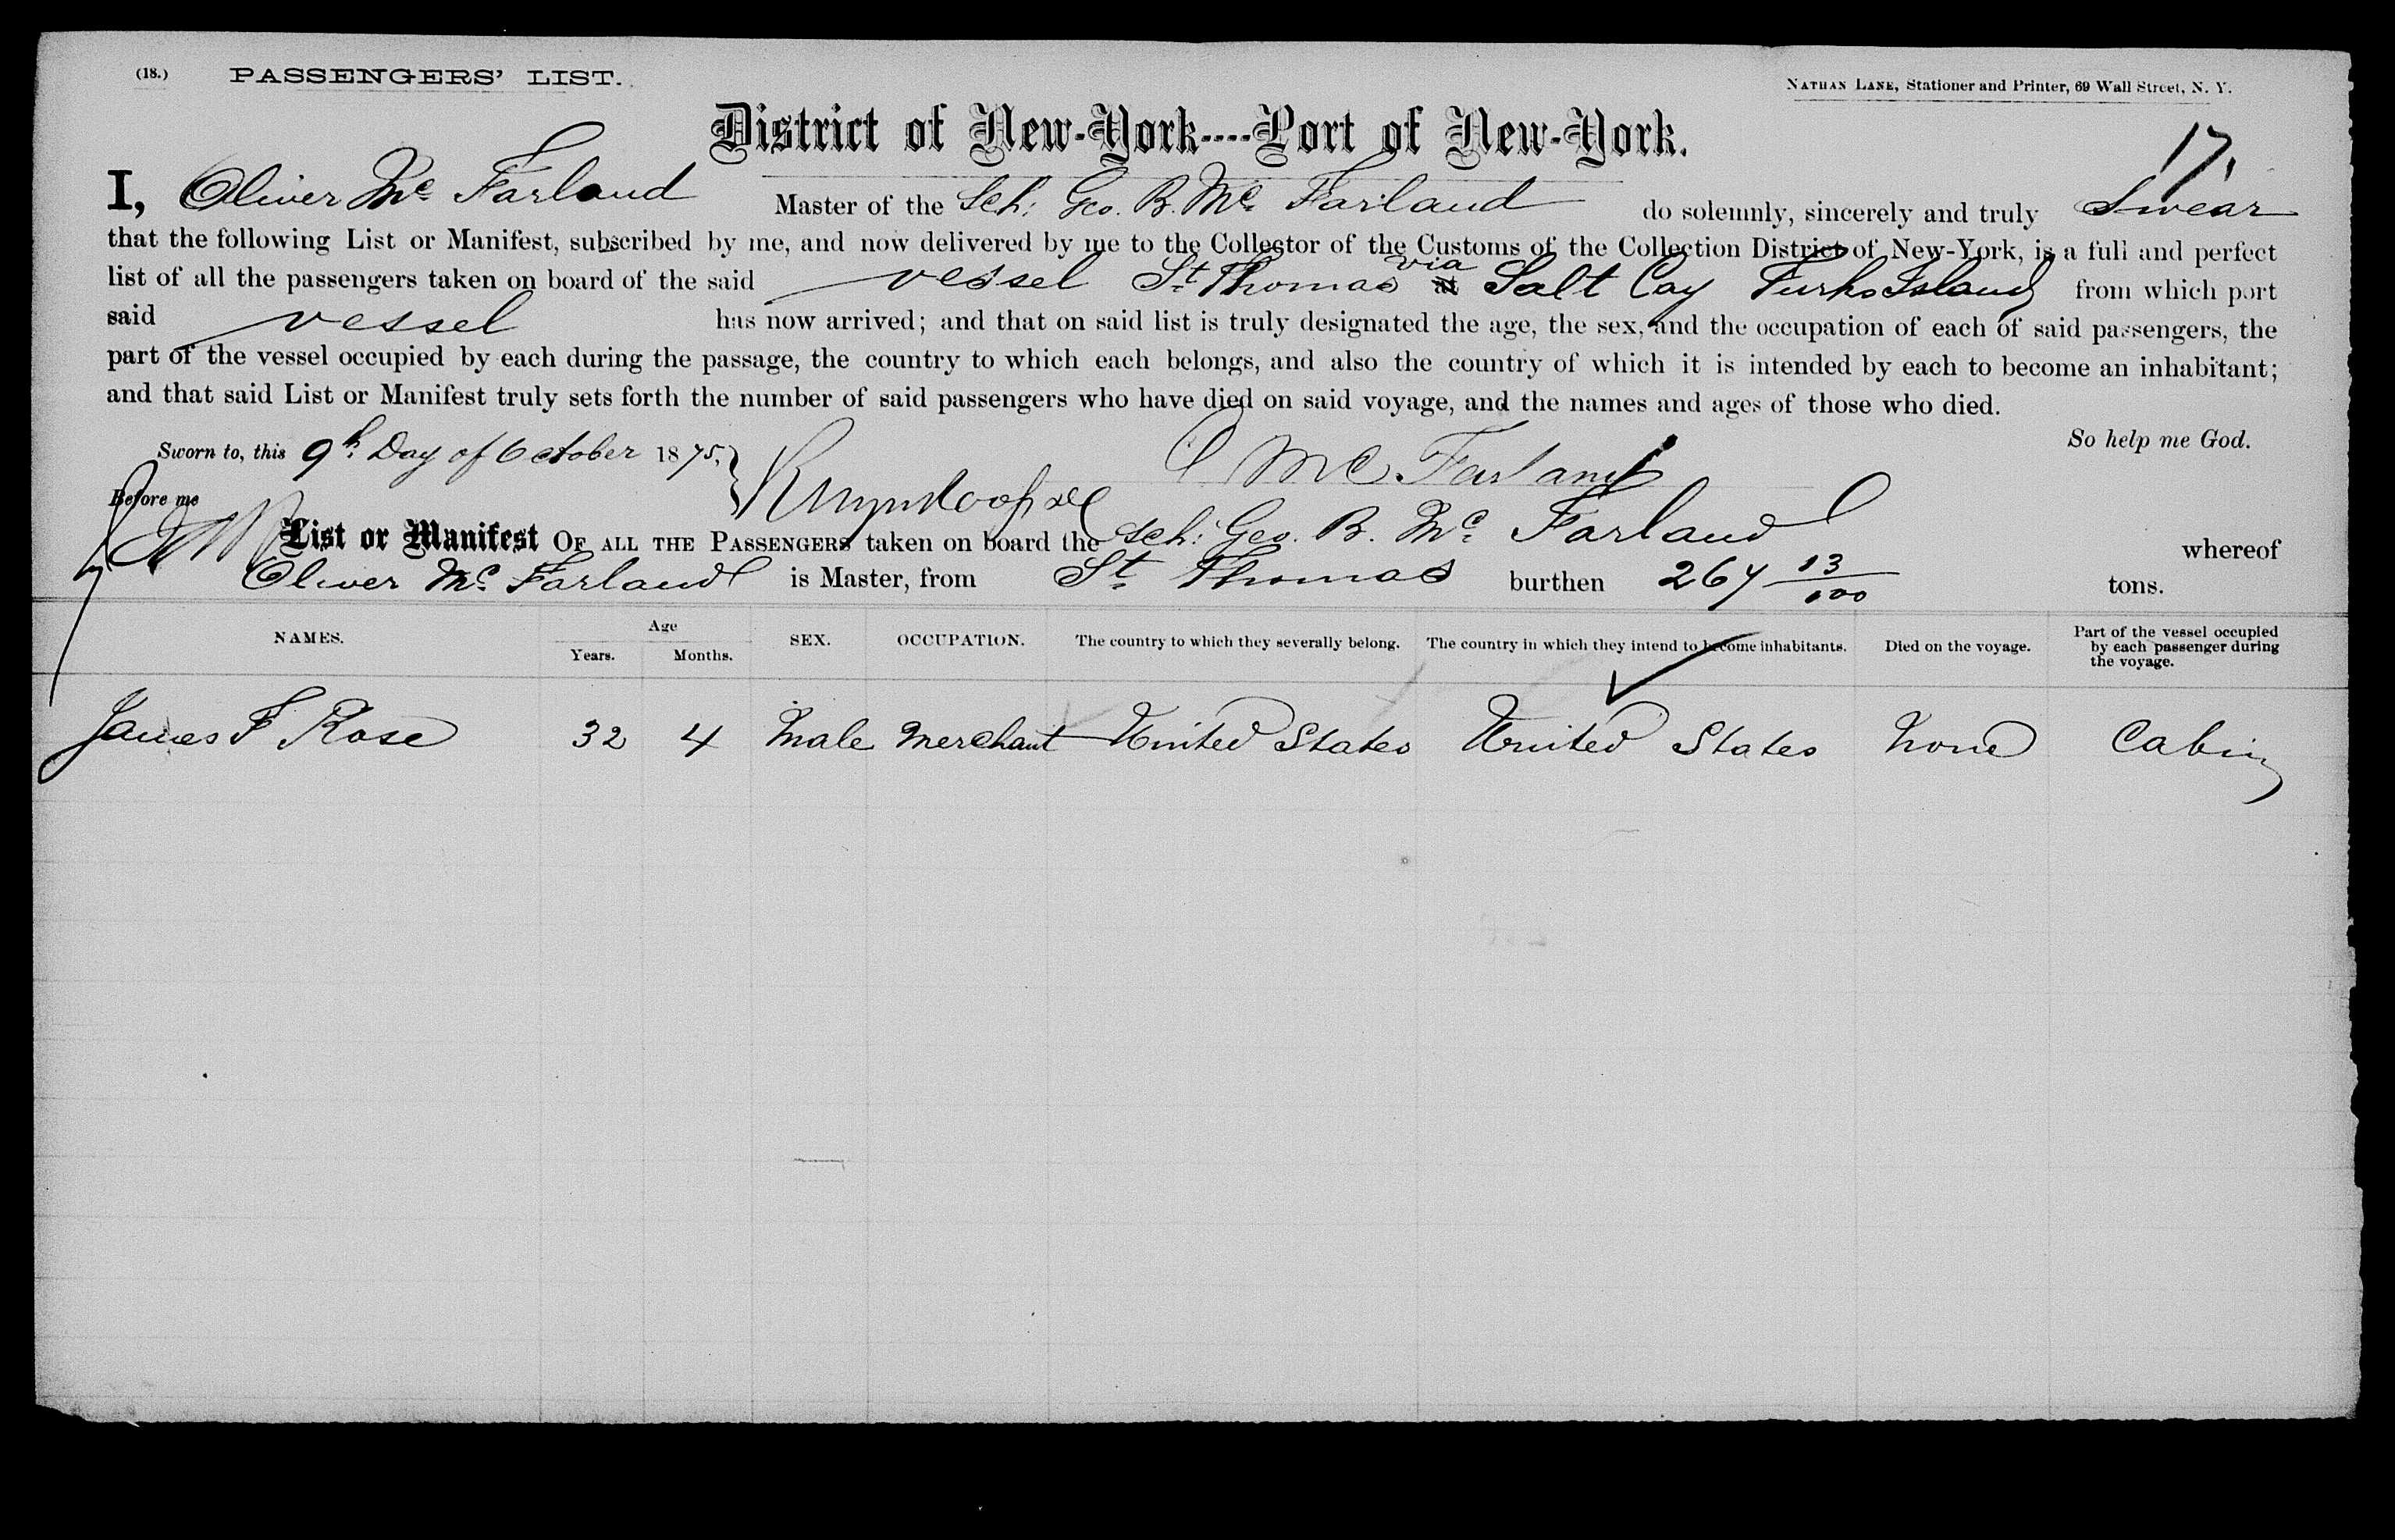 (18.) PASSENGERS' LIST. NATHAN LANE, Stationer and Printer, 69 Wall Street, N. Y.
District of New-York----Port of New-York.
17,
I, Oliver Mc Farland Master of the Sch: Geo. B. Mc Farland do solemnly, sincerely and truly Swear
that the following List or Manifest, subscribed by me, and now delivered by me to the Collector of the Customs of the Collection District of New-York, is a full and perfect
list of all the passengers taken on board of the said vessel St Thomas via Salt Cay Turks Island from which port
said vessel has now arrived; and that on said list is truly designated the age, the sex, and the occupation of each of said passengers, the
part of the vessel occupied by each during the passage, the country to which each belongs, and also the country of which it is intended by each to become an inhabitant;
and that said List or Manifest truly sets forth the number of said passengers who have died on said voyage, and the names and ages of those who died.
So help me God.
Sworn to, this 9h Day of October 1875, O Mc Farland
Before me
List or Manifest OF ALL THE PASSENGERS taken on board the Sch: Geo. B. Mc Farland whereof
Oliver Mc Farland is Master, from St Thomas burthen 267 13/100 tons.
NAMES. Age Years. Months. SEX. OCCUPATION. The country to which they severally belong. The country in which they intend to become inhabitants. Died on the voyage. Part of the vessel occupied by each passenger during the voyage.
James F Rose 32 4 Male Merchant United States United States None Cabin